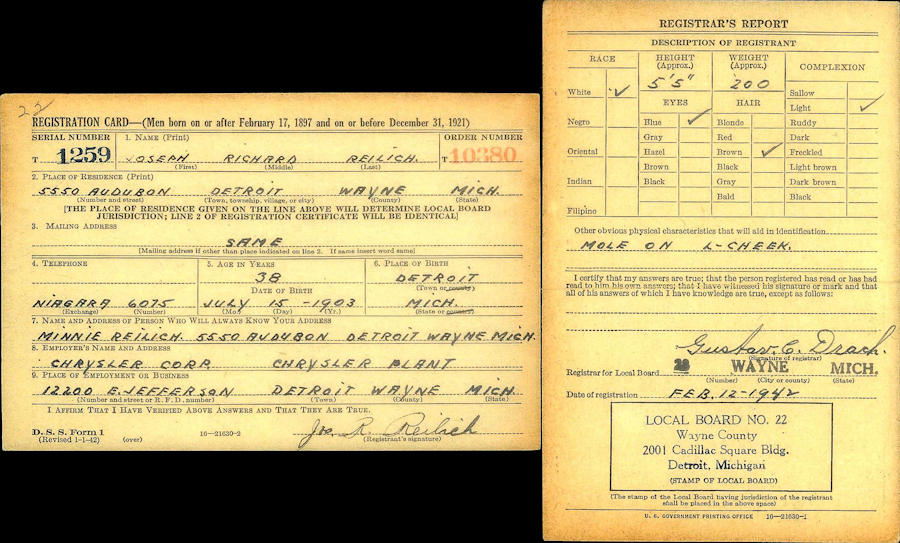 22
REGISTRATION CARD—(Men born on or after February 17, 1897 and on or before December 31, 1921)
SERIAL NUMBER 1. NAME (Print) ORDER NUMBER
T 1259 JOSEPH RICHARD REILICH. T 10380
(First) (Middle) (Last)
2. PLACE OF RESIDENCE (Print)
5550 AUDUBON DETROIT WAYNE MICH.
(Number and street) (Town, township, village, or city) (County) (State)
[THE PLACE OF RESIDENCE GIVEN ON THE LINE ABOVE WILL DETERMINE LOCAL BOARD
JURISDICTION; LINE 2 OF REGISTRATION CERTIFICATE WILL BE IDENTICAL]
3. MAILING ADDRESS
SAME
[Mailing address if other than place indicated on line 2. If same insert word same]
4. TELEPHONE 5. AGE IN YEARS 6. PLACE OF BIRTH
38 DETROIT
DATE OF BIRTH (Town or county)
NIAGARA 6075 JULY 15 -1903 MICH.
(Exchange) (Number) (Mo.) (Day) (Yr.) (State or country)
7. NAME AND ADDRESS OF PERSON WHO WILL ALWAYS KNOW YOUR ADDRESS
MINNIE REILICH. 5550 AUDUBON DETROIT WAYNE MICH.
8. EMPLOYER'S NAME AND ADDRESS
CHRYSLER CORP. CHRYSLER PLANT
9. PLACE OF EMPLOYMENT OR BUSINESS
12200 E. JEFFERSON DETROIT WAYNE MICH.
(Number and street or R. F. D. number) (Town) (County) (State)
I AFFIRM THAT I HAVE VERIFIED ABOVE ANSWERS AND THAT THEY ARE TRUE.
D. S. S. Form 1
(Revised 1-1-42) (over) 16—21630-2 Jos. R. Reilich
(Registrant's signature)
REGISTRAR'S REPORT
DESCRIPTION OF REGISTRANT
RACE HEIGHT (Approx.) WEIGHT (Approx.) COMPLEXION
5'5" 200
White ✓ Sallow
EYES HAIR Light ✓
Negro Blue ✓ Blonde Ruddy
Gray Red Dark
Oriental Hazel Brown ✓ Freckled
Brown Black Light brown
Indian Black Gray Dark brown
Bald Black
Filipino
Other obvious physical characteristics that will aid in identification
MOLE ON L-CHEEK.
I certify that my answers are true; that the person registered has read or has had
read to him his own answers; that I have witnessed his signature or mark and that
all of his answers of which I have knowledge are true, except as follows:
Gustav. C. Drach.
(Signature of registrar)
Registrar for Local Board WAYNE MICH.
(Number) (City or county) (State)
Date of registration FEB. 12-1942
LOCAL BOARD NO. 22
Wayne County
2001 Cadillac Square Bldg.
Detroit, Michigan
(STAMP OF LOCAL BOARD)
(The stamp of the Local Board having jurisdiction of the registrant
shall be placed in the above space)
U. S. GOVERNMENT PRINTING OFFICE 16—21630-1